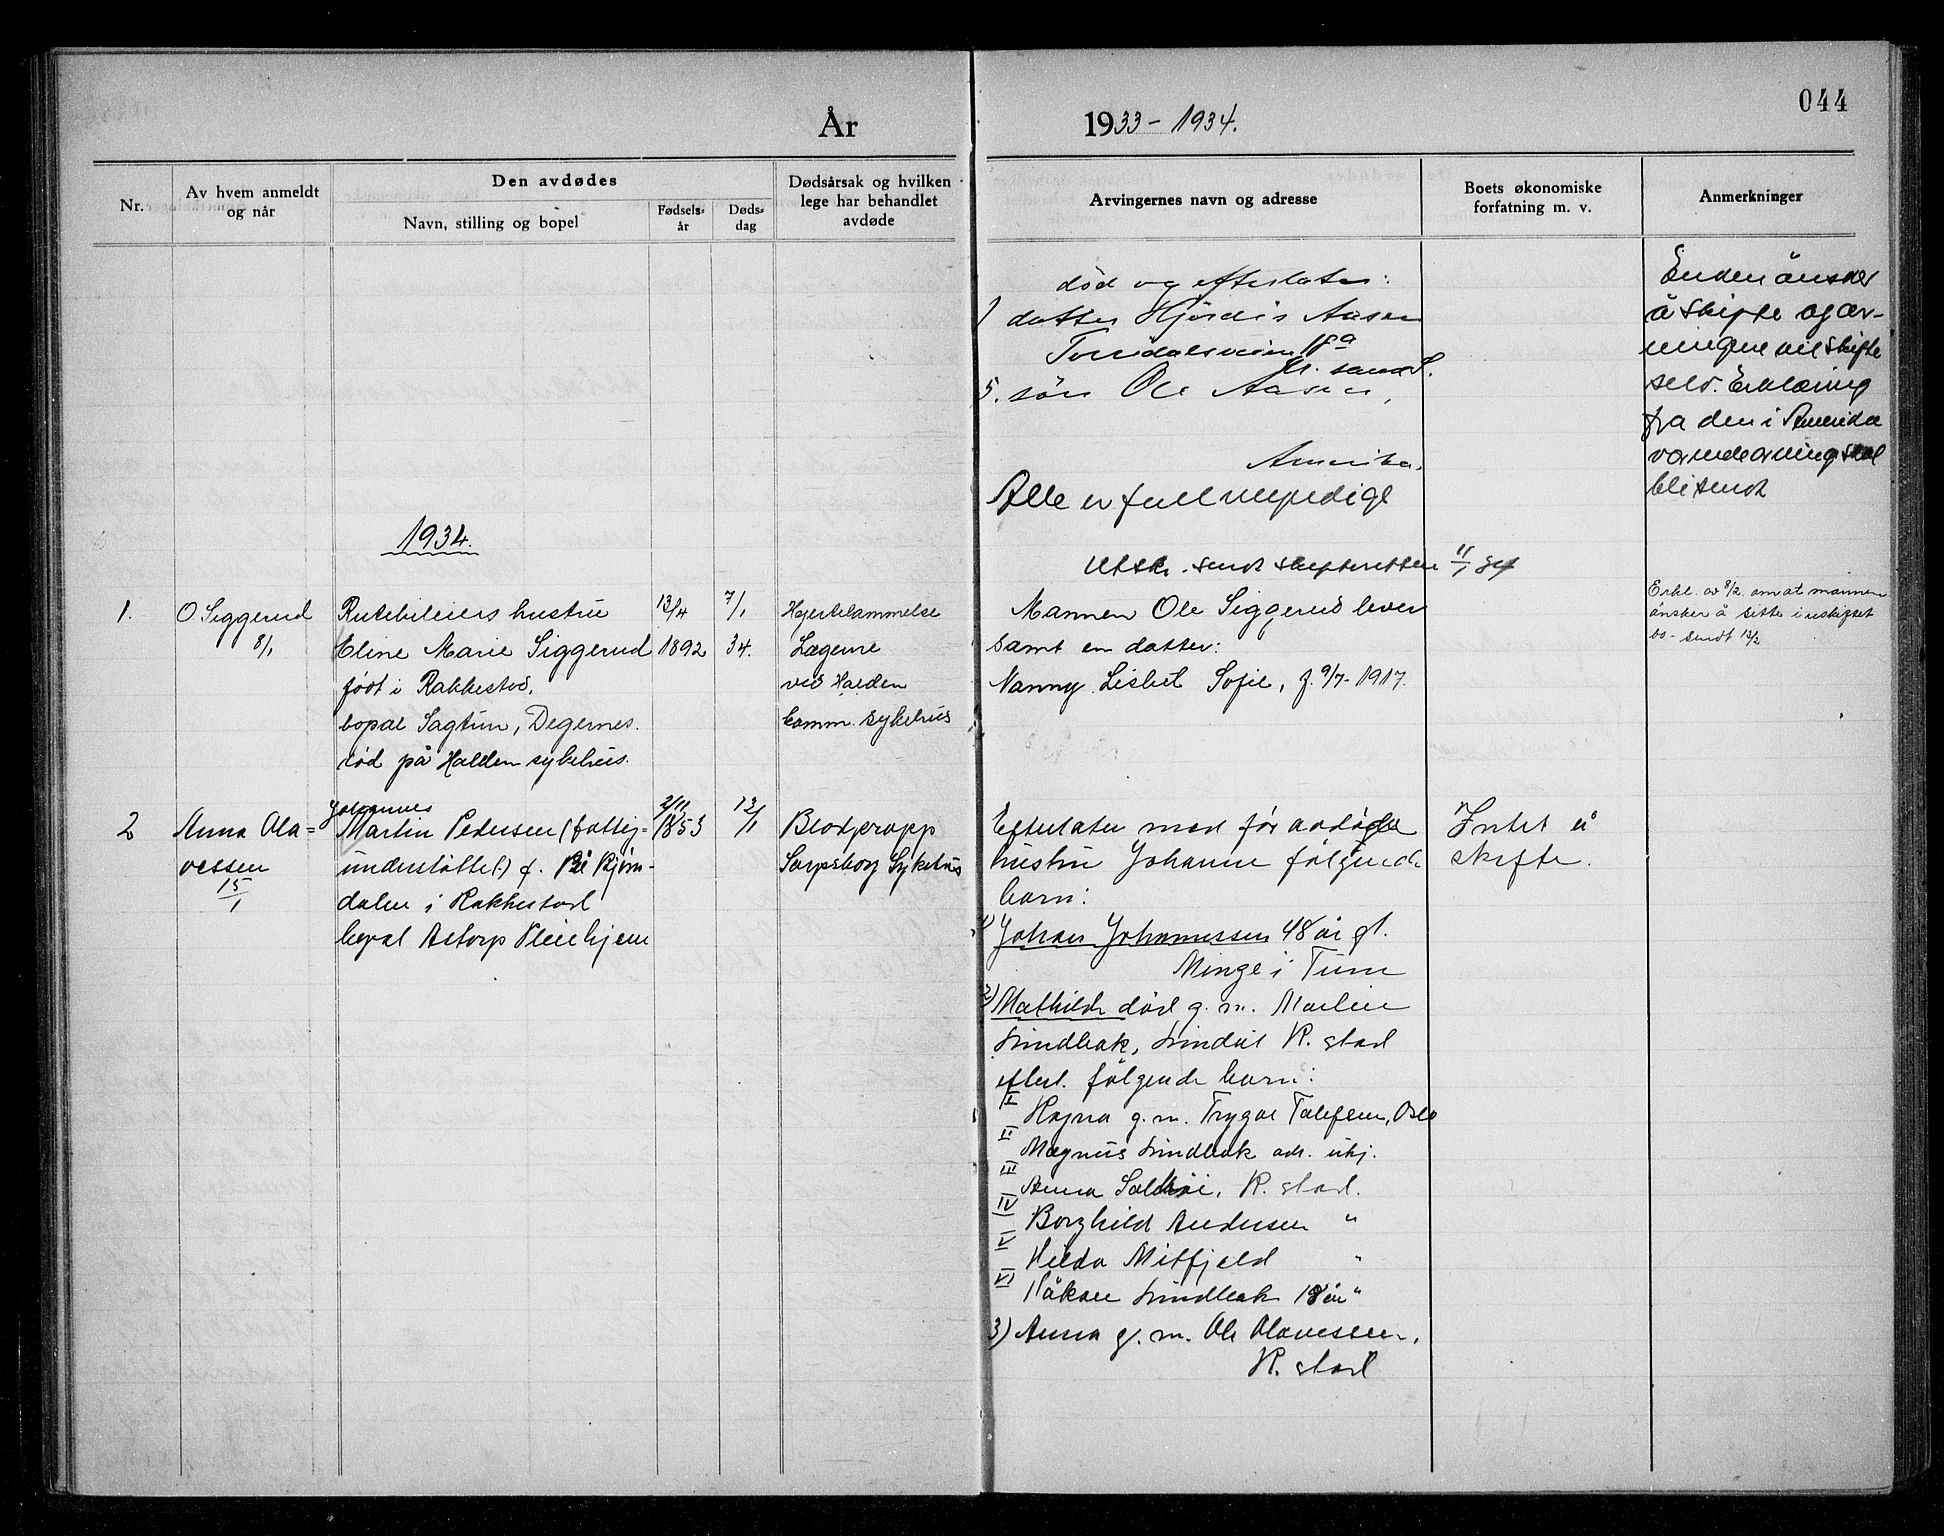 044
År 1933-1934.
Nr.
Av hvem anmeldt
og når
Den avdødes
Navn, stilling og bopel
Fødsels-
år
Døds-
dag
Dødsårsak og hvilken
lege har behandlet
avdøde
Arvingernes navn og adresse
Boets økonomiske
forfatning m. v.
Anmerkninger
død og efterlater:
1 datter Hjördis Aasen
18 a
Kr. sand S.
5. sön Ole Aasen,
Amerika.
Alle er fullmyndige
Enken önsker
å skifte og ar-
vingene vil skifte
selv. Erklæring
fra den i Amerika
varende arving skal
bli sendt
1934.
Utskr. sendt skifteretten 11/1
1.
O Siggerud
8/1
Rutebileiers hustru
Eline Marie Siggerud
födt i Rakkestad,
bopæl Sagtun, Degernes.
död på Halden sykehus.
13/4
1892
7/1
34.
Hjertelammelse
Lægerne
ved Halden
komm. sykehus
Mannen Ole Siggerud lever
samt en datter:
Nanny Lisbet Sofie, f. 9/7-1917.
Erkl. av 8/2 om at mannen
önsker å sitte i uskiftet
bo - sendt 13/2
2
Anna Ola=
vessen
15/1
Johannes
Martin Pedersen (fattig=
understöttet) f. Bjørn-
dalen i Rakkestad
bopæl Astorp Pleiehjem
2/11
1853
13/1
Blodpropp
Sarpsborg Sykehus
Efterlater med før avdøde
hustru Johanne følgende
barn:
1) Johan Johannessen 48 år gl.
Minge i Tune
2) Mathilde död g. m. Martin
Lindbak, R. stad
efterl. følgende barn:
I Ragna g. m. Trygve Oslo
II Magnus Lindbak adr. ukj.
III Anna R. stad.
IV Borghild Andersen "
V Hilda Mitfjeld "
VI Håkon Lindbak 18 år "
3) Anna g. m. Ole Olavessen,
R. stad
Intet å
skifte.